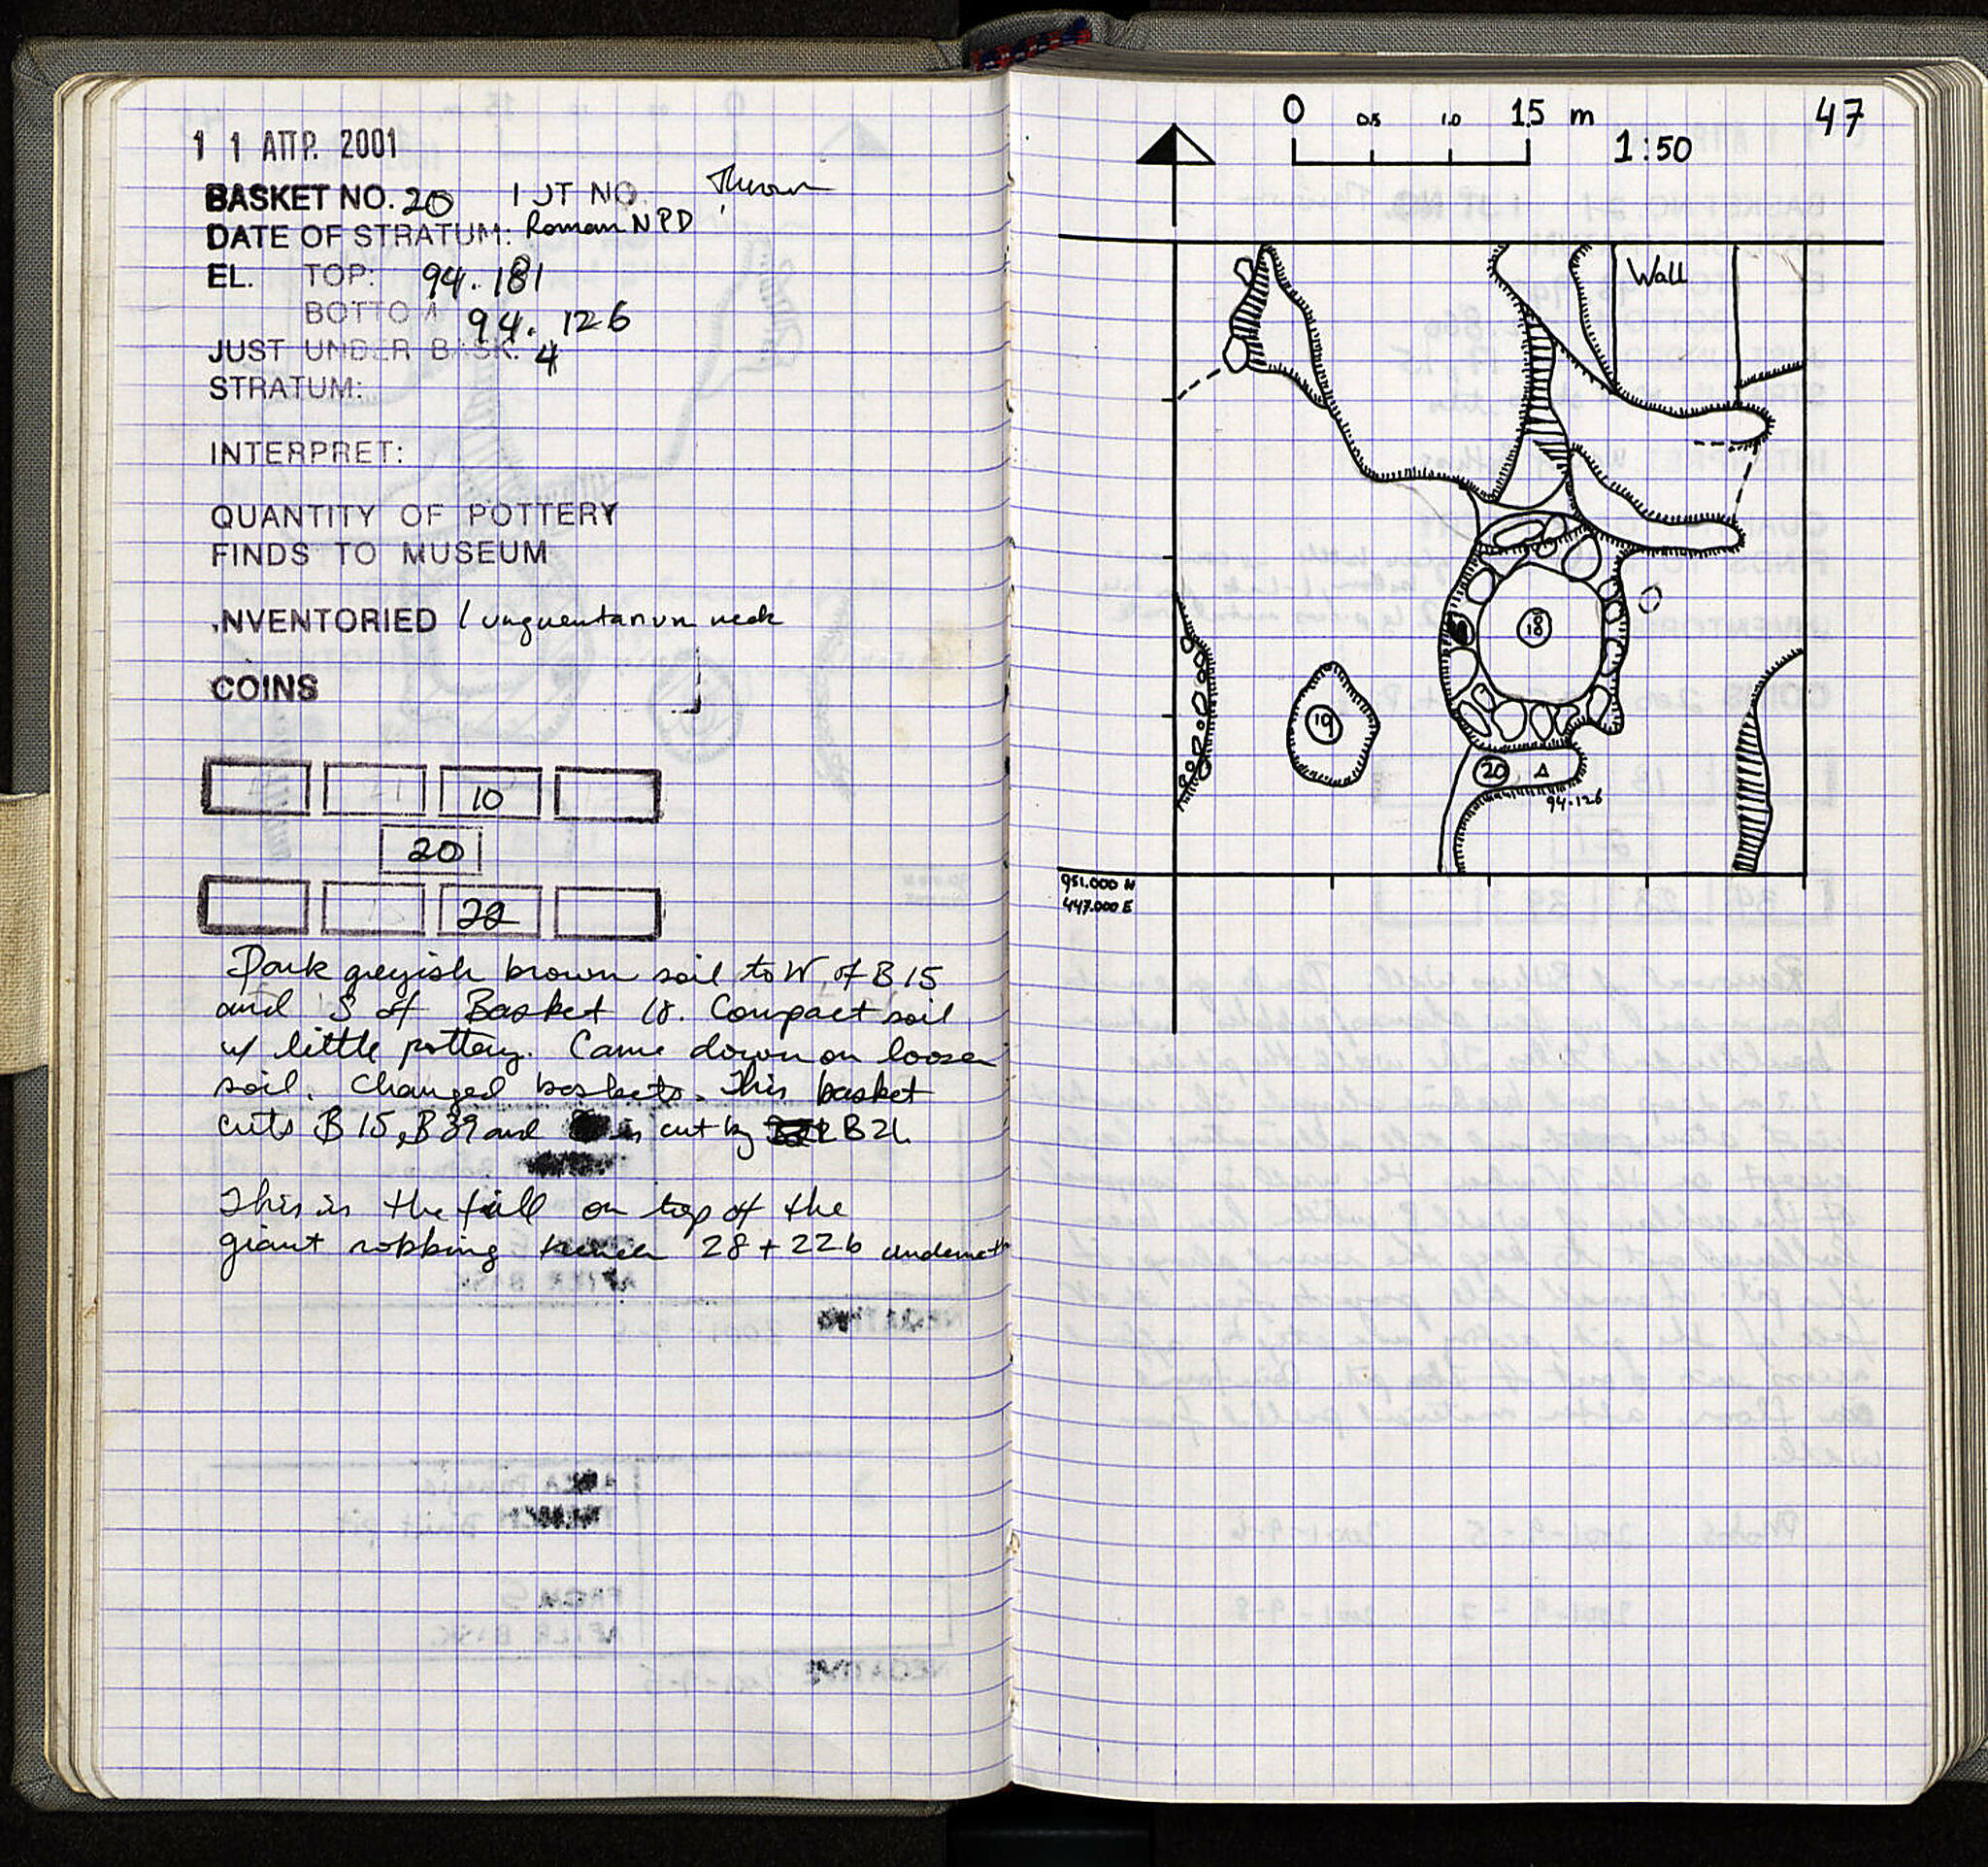 1 1 ΑΠΡ. 2001
BASKET NO. 20 JT NO. Thrown
DATE OF STRATUM: Roman NPD
EL. TOP: 94.181
BOTTO 94.126
JUST UNDER BASK. 4
STRATUM:
INTERPRET:
QUANTITY OF POTTERY
FINDS TO MUSEUM
NVENTORIED 1 unguentarium neck
COINS
10
20
22
Dark greyish brown soil to W of B15
and S of Basket 18. Compact soil
w/ little pottery. Came down on looser
soil. Changed baskets. This basket
cuts B15, B39 and is cut by
This is the fill on top of the
giant robbing trench 28 + 22b underneath
47
0 0.5 1.0 1.5 m
1:50
Wall
18
19
20 Δ
94.126
951.000 N
447.000 E